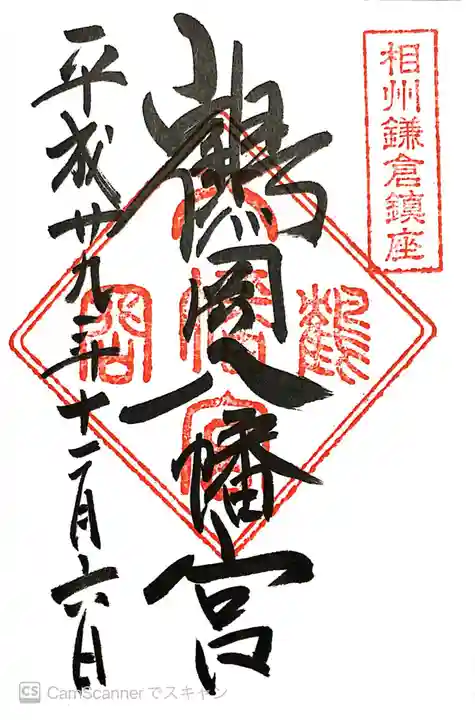 相州鎌倉鎮座
鶴岡八幡宮
平成廿九年十二月六日
CS CamScannerでスキャン